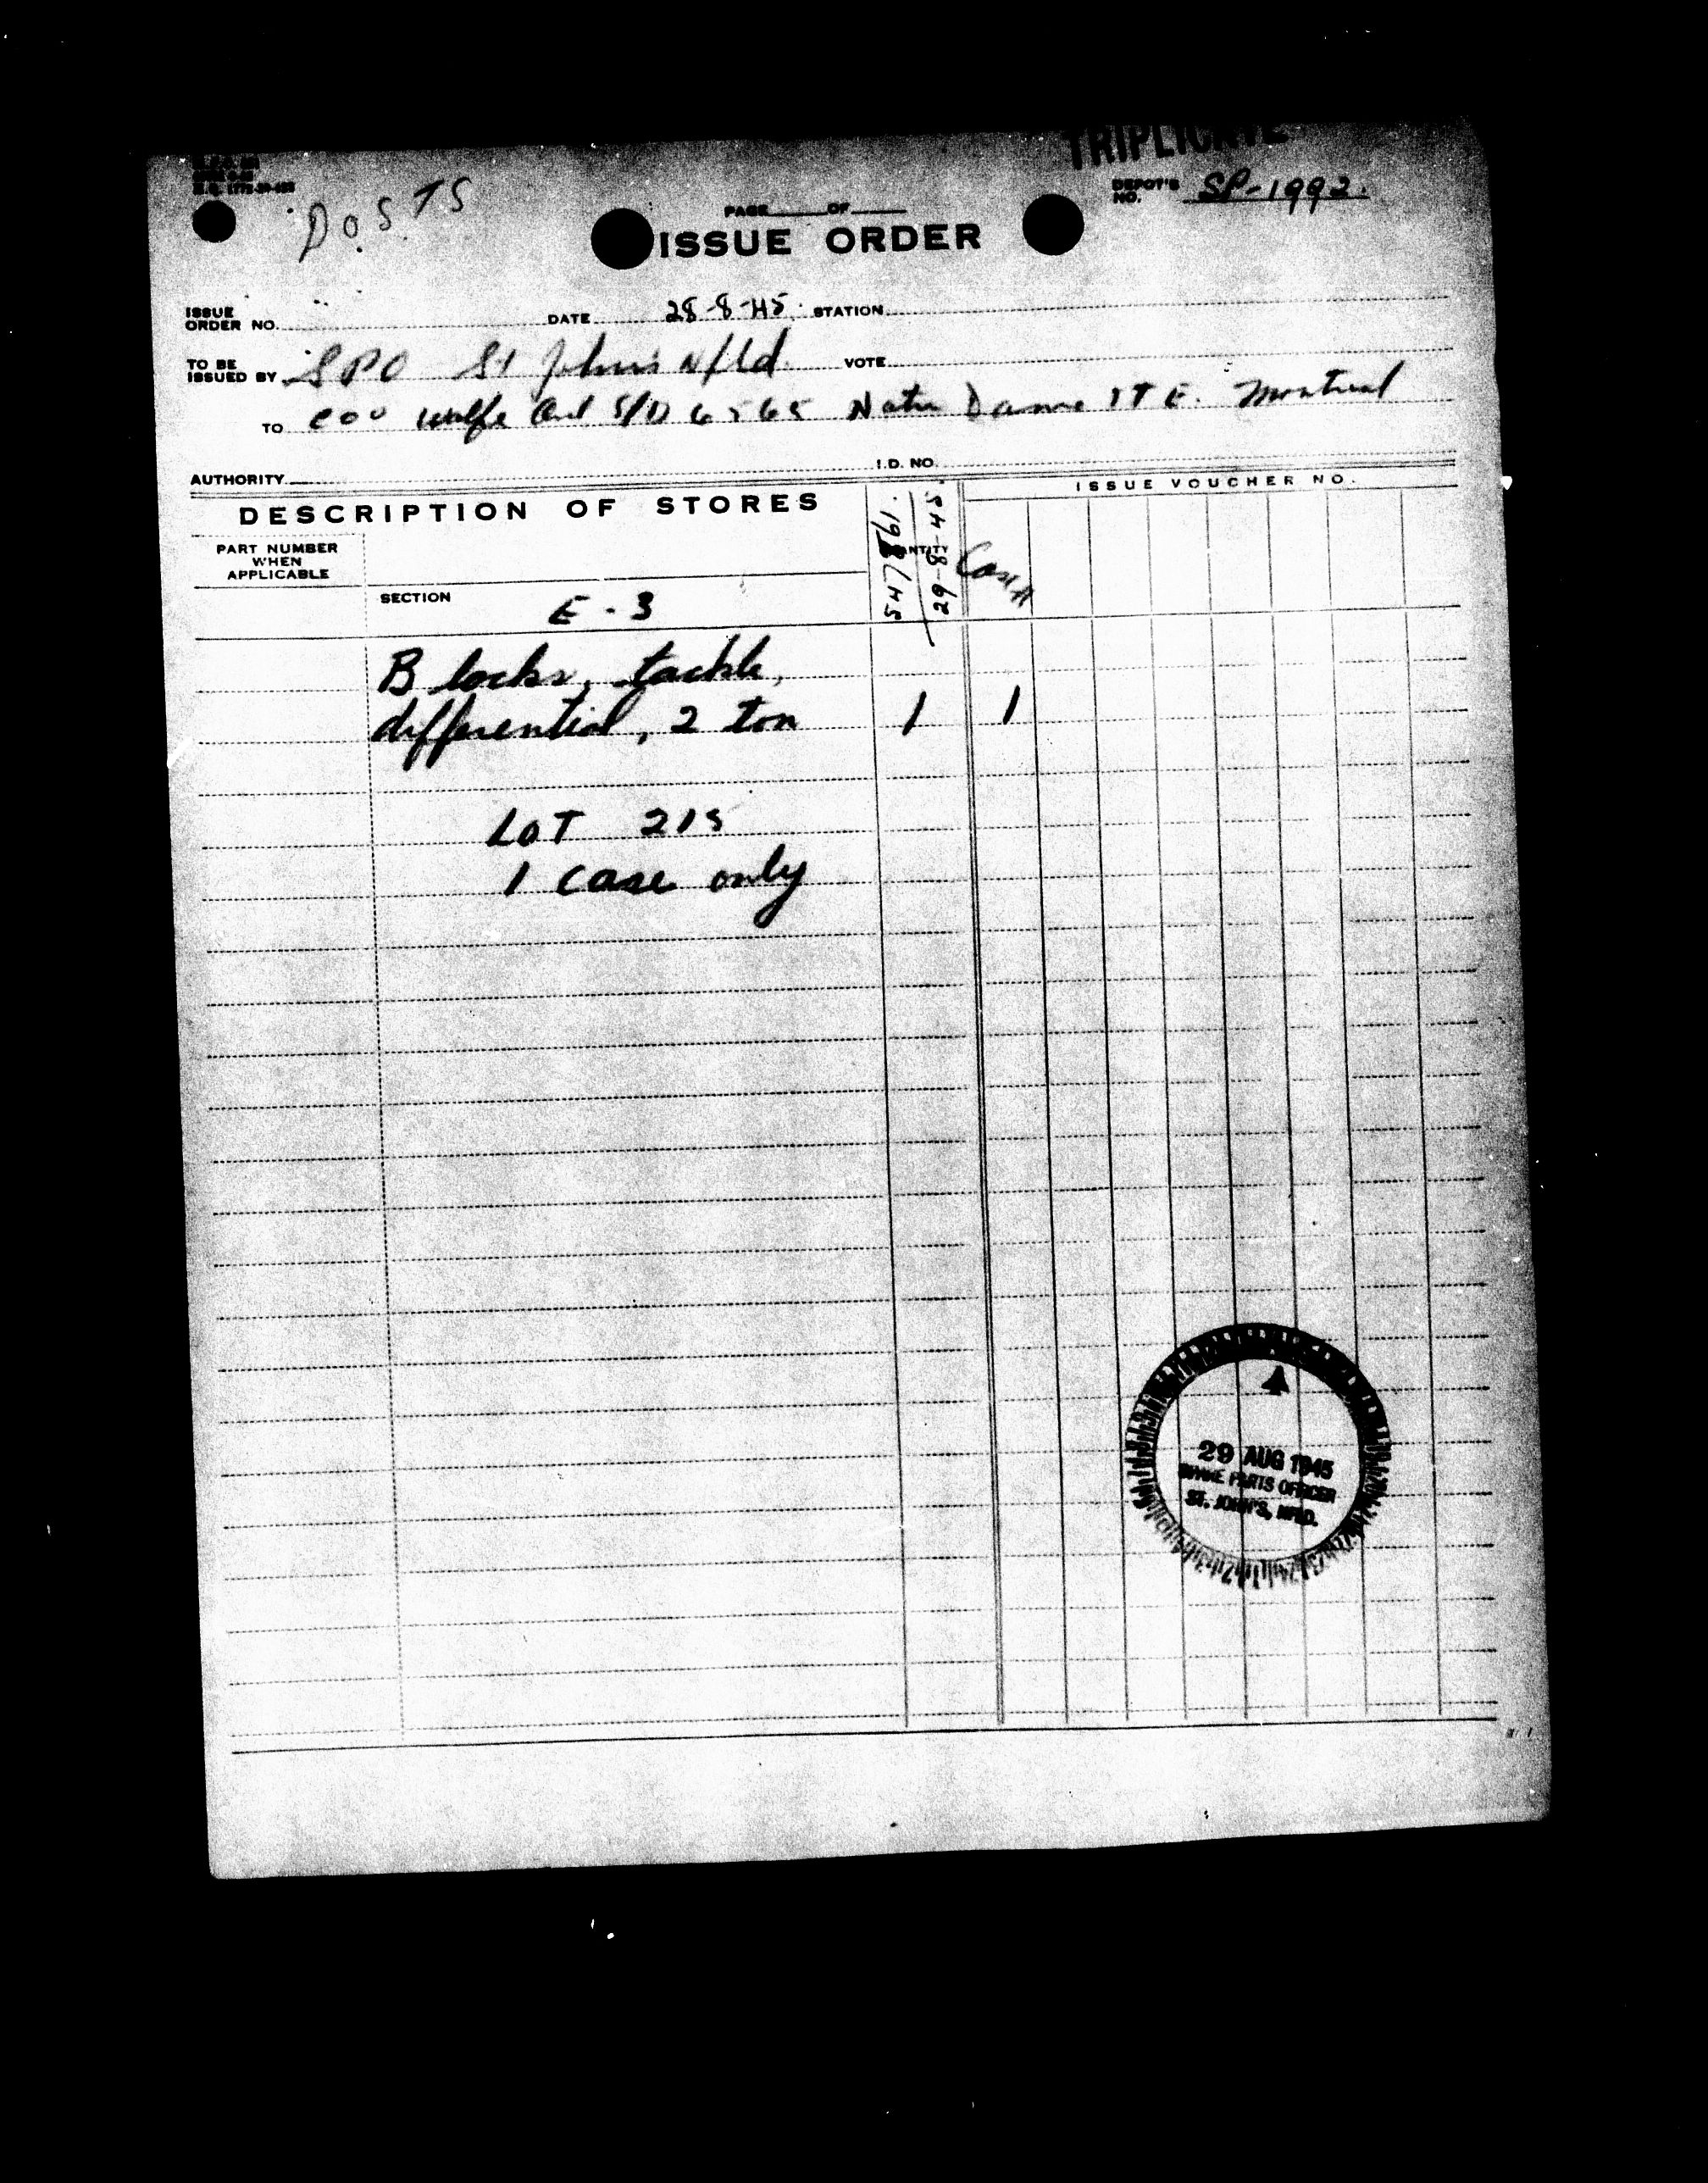 TRIPLICATE
H.Q. 1772-39-
D.O.S. TS
DEPOT'S NO. SP-1992.
PAGE OF
ISSUE ORDER
ISSUE ORDER NO. DATE 28-8-45. STATION
TO BE ISSUED BY SPO St John's Nfld. VOTE
TO COO Wolfe Ord S/D 6565 Notre Dame ST E. Montreal
AUTHORITY I.D. NO.
DESCRIPTION OF STORES
ISSUE VOUCHER NO.
PART NUMBER WHEN APPLICABLE
29-8-45.
Case #
SECTION E-3
Blocks, tackle,
differential, 2 ton 1 1
LOT 215
1 case only
29 AUG 1945
PARTS OFFICER
ST. JOHN'S, NFLD.